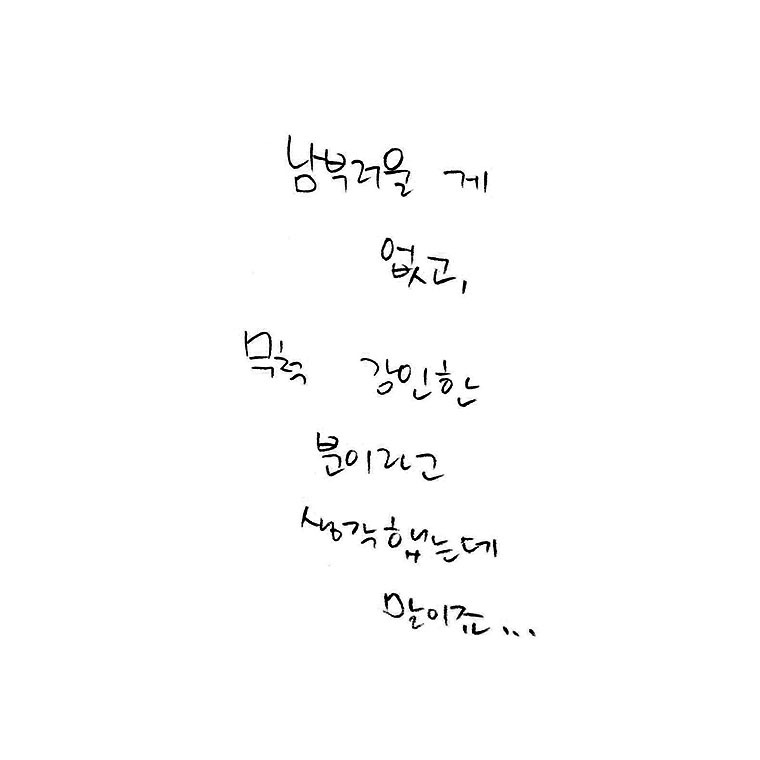 남부러울 게
없고,
무척 강인한
분이라고
생각했는데
말이죠...